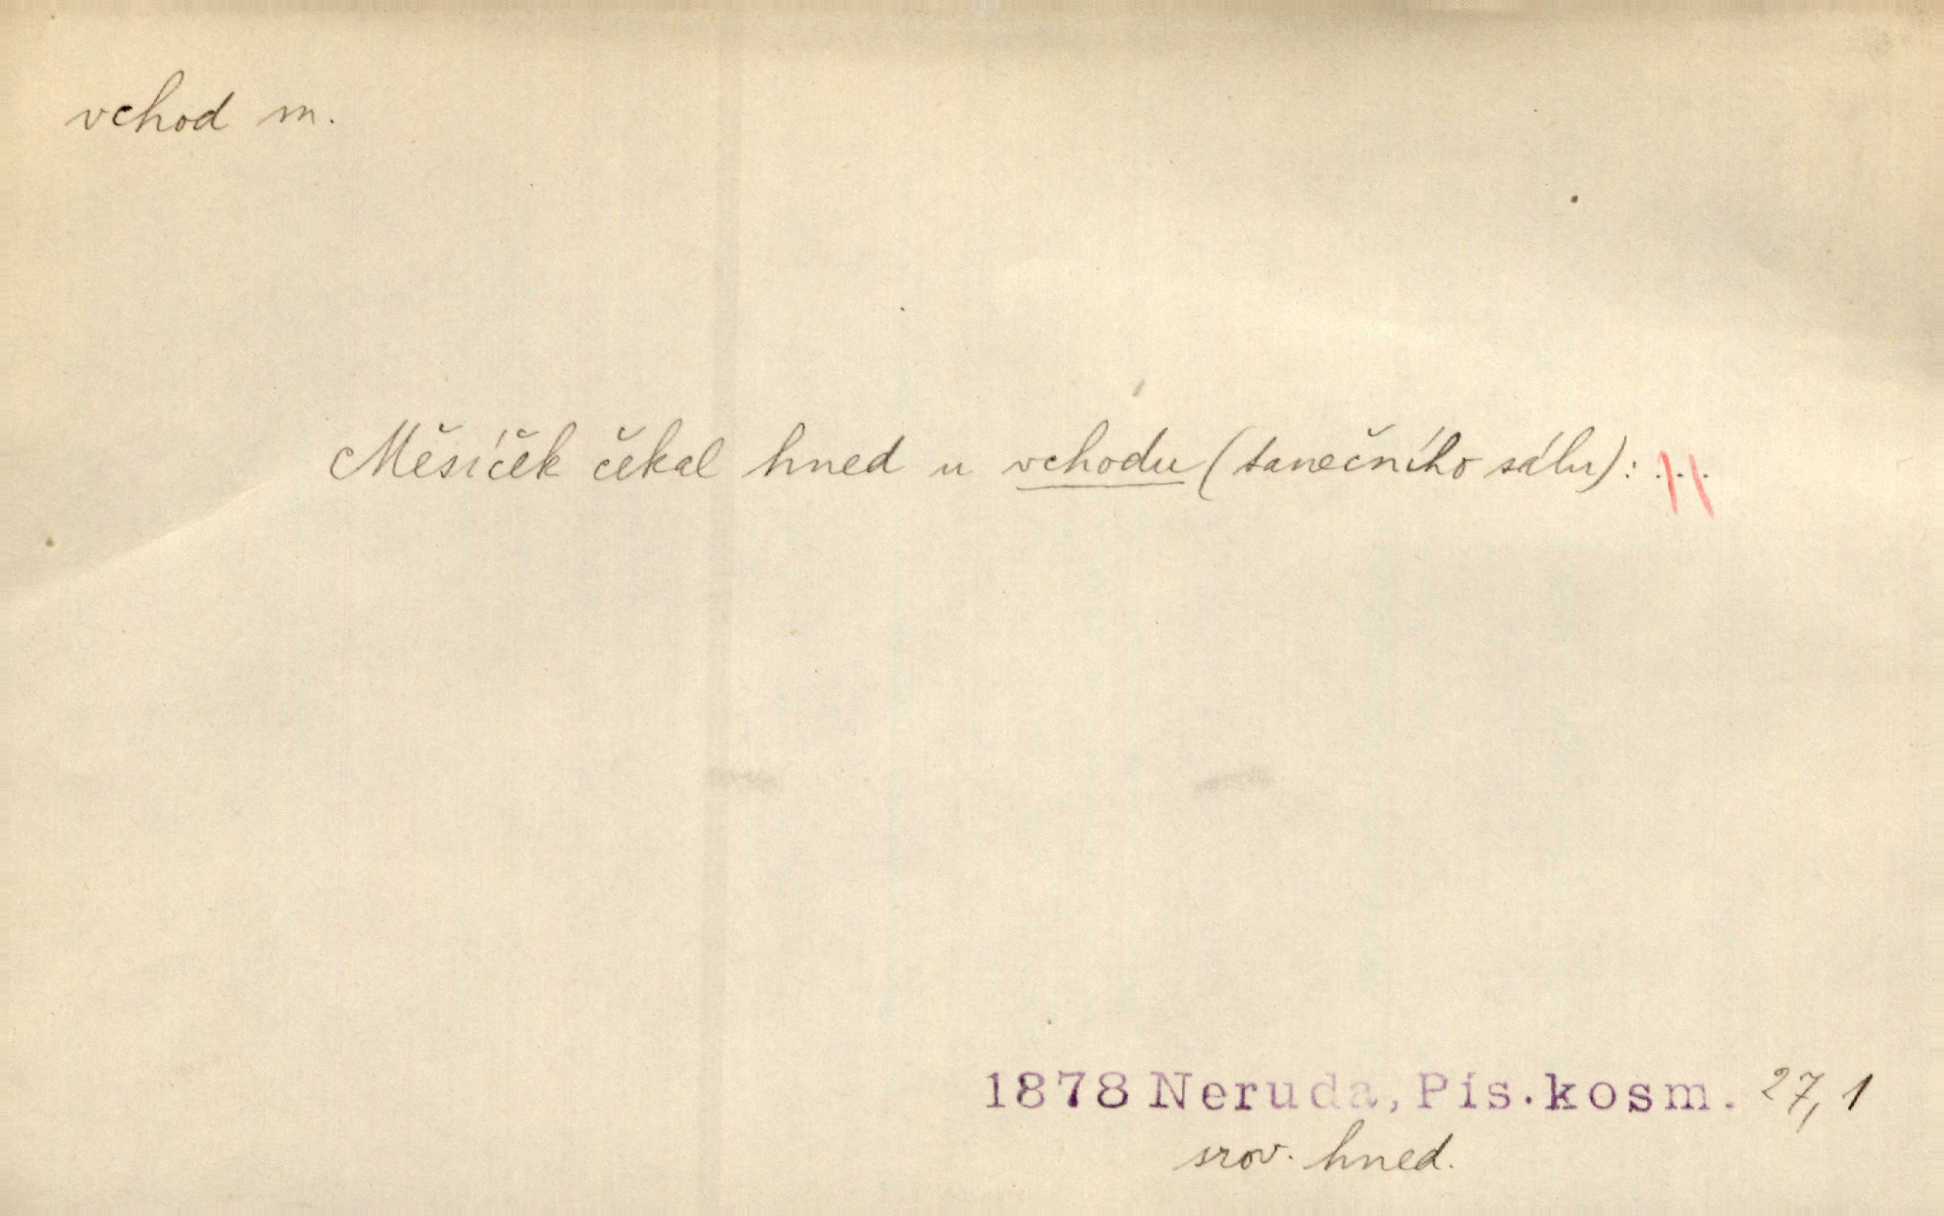 vchod m.
Měsíček čekal hned u vchodu (tanečního sálu): ...
1878 Neruda, Pís. kosm. 27, 1
srov. hned.